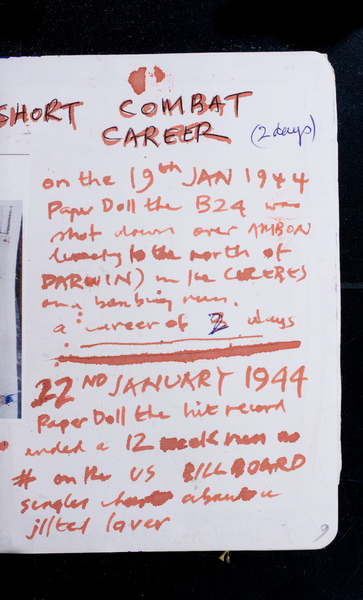 SHORT COMBAT
CAREER (2 days)
on the 19th JAN 1944
Paper Doll the B24 was
shot down over AMBON
to the north of
DARWIN) in the CERERES
on a bombing run.
a career of 2 days
22ND JANUARY 1944
Paper Doll the hit record
ended a 12 week run as
# on the US BILLBOARD
singles chart about a
jilted lover
9